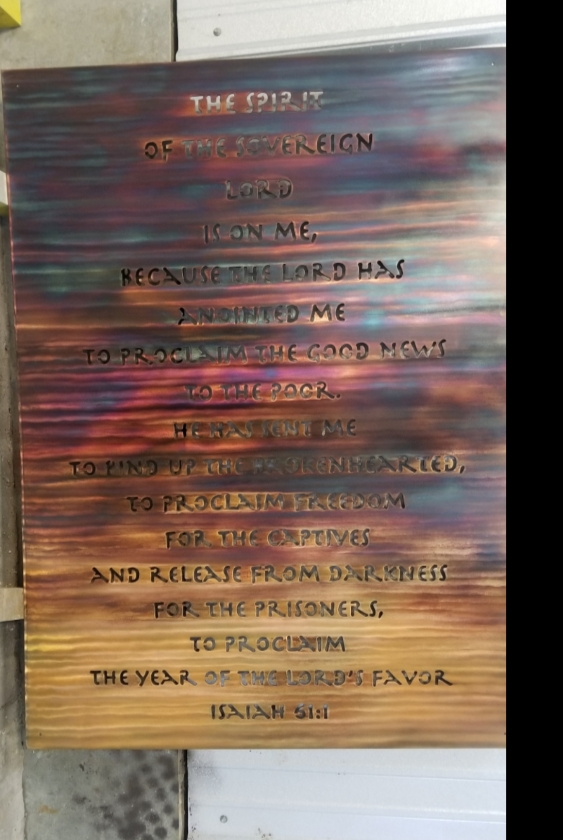 THE SPIRIT
OF THE SOVEREIGN
LORD
IS ON ME,
BECAUSE THE LORD HAS
ANOINTED ME
TO PROCLAIM THE GOOD NEWS
TO THE POOR.
HE HAS SENT ME
TO BIND UP THE BROKENHEARTED,
TO PROCLAIM FREEDOM
FOR THE CAPTIVES
AND RELEASE FROM DARKNESS
FOR THE PRISONERS,
TO PROCLAIM
THE YEAR OF THE LORD'S FAVOR
ISAIAH 61:1